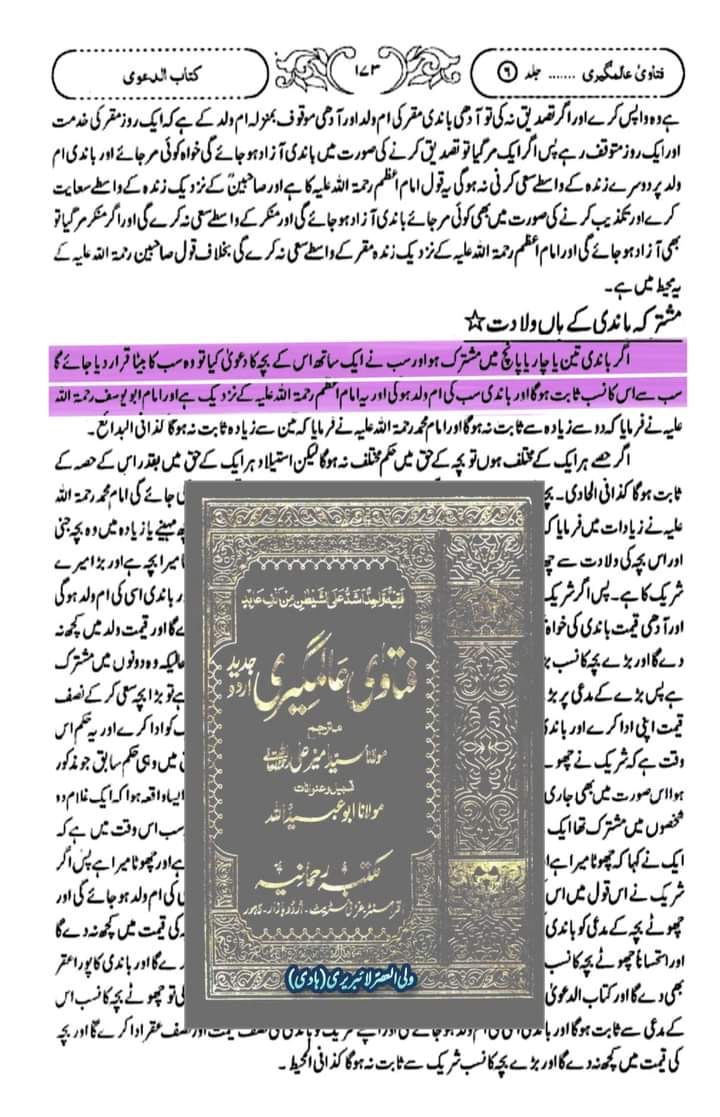 فتاویٰ عالمگیری ....... جلد ⑥
۱۷۳
کتاب الدعوی
ہے وہ واپس کرے اور اگر تصدیق نہ کی تو آدھی باندی مقر کی ام ولد اور آدھی موقوف بمنزلہ ام ولد کے ہے کہ ایک روز مقر کی خدمت
اور ایک روز متوقف رہے پس اگر ایک مر گیا تو تصدیق کرنے کی صورت میں باندی آزاد ہو جائے گی خواہ کوئی مر جائے اور باندی ام
ولد پر دوسرے زندہ کے واسطے سعی کرنی نہ ہوگی یہ قول امام اعظم رحمۃ اللہ علیہ کا ہے اور صاحبینؒ کے نزدیک زندہ کے واسطے سعایت
کرے اور تکذیب کرنے کی صورت میں بھی کوئی مر جائے باندی آزاد ہو جائے گی اور منکر کے واسطے سعی نہ کرے گی اور اگر منکر مر گیا تو
بھی آزاد ہو جائے گی اور امام اعظم رحمۃ اللہ علیہ کے نزدیک زندہ مقر کے واسطے سعی نہ کرے گی بخلاف قول صاحبین رحمۃ اللہ علیہ کے
یہ محیط میں ہے۔
مشترکہ باندی کے ہاں ولادت ☆
اگر باندی تین یا چار یا پانچ میں مشترک ہو اور سب نے ایک ساتھ اس کے بچہ کا دعویٰ کیا تو وہ سب کا بیٹا قرار دیا جائے گا
سب سے اس کا نسب ثابت ہوگا اور باندی سب کی ام ولد ہوگی اور یہ امام اعظم رحمۃ اللہ علیہ کے نزدیک ہے اور امام ابو یوسف رحمۃ اللہ
علیہ نے فرمایا کہ دو سے زیادہ سے ثابت نہ ہوگا اور امام محمد رحمۃ اللہ علیہ نے فرمایا کہ تین سے زیادہ ثابت نہ ہوگا کذافی البدائع۔
اگر حصے ہر ایک کے مختلف ہوں تو بچہ کے حق میں حکم مختلف نہ ہوگا لیکن استیلاد ہر ایک کے حق میں بقدر اس کے حصہ کے
ثابت ہوگا کذافی الحاوی۔ جائے گی امام محمد رحمۃ اللہ
علیہ نے زیادات میں فرمایا کہ چھ مہینے یا زیادہ میں وہ بچہ جنی
اور اس بچہ کی ولادت سے میرا بچہ ہے اور بڑا میرے
شریک کا ہے۔ پس اگر شریک باندی اسی کی ام ولد ہوگی
اور آدھی قیمت باندی کی خواہ گا اور قیمت ولد میں کچھ نہ
دے گا اور بڑے بچہ کا نسب حالیکہ وہ دونوں میں مشترک
ہے پس بڑے کے مدعی پر ہے تو بڑا بچہ سعی کر کے نصف
قیمت اپنی ادا کرے اور باندی کو ادا کرے اور یہ حکم اس
وقت ہے کہ شریک نے چھو میں وہی حکم سابق جو مذکور
ہوا اس صورت میں بھی جاری ایسا واقعہ ہوا کہ ایک غلام دو
شخصوں میں مشترک تھا ایک سب اس وقت میں ہے کہ
ایک نے کہا کہ چھوٹا میرا ہے ہے اور چھوٹا میرا ہے پس اگر
شریک نے اس قول میں اس کی ام ولد ہو جائے گی اور
چھوٹے بچہ کے مدعی کو باندی کی قیمت میں کچھ نہ دے گا
اور استحساناً چھوٹے بچہ کا نسب دے گا اور باندی کا پورا عقر
بھی دے گا اور کتاب الدعویٰ تو چھوٹے بچہ کا نسب اس
کے مدعی سے ثابت ہوگا اور عقر ادا کرے گا اور بچہ
کی قیمت میں کچھ نہ دے گا اور بڑے بچہ کا نسب شریک سے ثابت نہ ہوگا کذافی المحیط۔
فقیہ واحد اشد علی الشیطٰن من الف عابد
فتاویٰ عالمگیری جدید اردو
مترجم
مولانا سید امیر علی
تسہیل و عنوانات
مولانا ابو عبید اللہ
مکتبہ رحمانیہ
اقرا سنٹر غزنی سٹریٹ۔ اردو بازار۔ لاہور
ولی العصر لائبریری (ہادی)